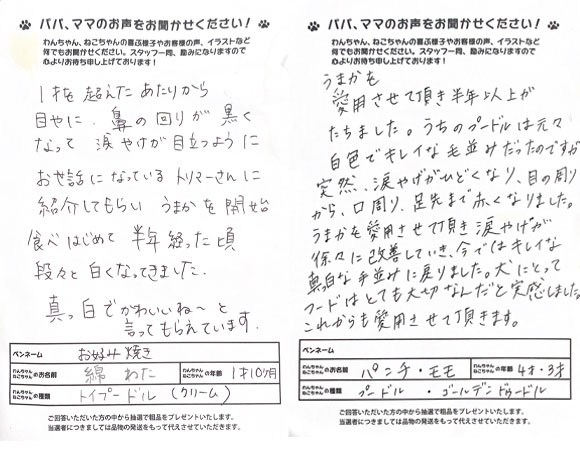 パパ、ママのお声をお聞かせください！
わんちゃん、ねこちゃんの喜ぶ様子やお客様の声、イラストなど
何でもお聞かせください。スタッフ一同、励みになりますので
心よりお待ち申し上げております！
1才を超えたあたりから
目やに、鼻の回りが黒く
なって 涙やけが目立つように
お世話になっているトリマーさんに
紹介してもらい うまかを開始
食べはじめて 半年経った頃
段々と白くなってきました.
真っ白でかわいいね〜と
言ってもらえています.
ペンネーム お好み焼き
わんちゃん ねこちゃん のお名前 綿 わた わんちゃん ねこちゃん の年齢 1才10ヶ月
わんちゃん ねこちゃん の種類 トイプードル (クリーム)
ご回答いただいた方の中から抽選で粗品をプレゼントいたします。
当選者につきましては品物の発送をもって代えさせていただきます。
パパ、ママのお声をお聞かせください！
わんちゃん、ねこちゃんの喜ぶ様子やお客様の声、イラストなど
何でもお聞かせください。スタッフ一同、励みになりますので
心よりお待ち申し上げております！
うまかを
愛用させて頂き半年以上が
たちました。うちのプードルは元々
白色でキレイな毛並みだったのですが
突然、涙やけがひどくなり、目の周り
から、口周り、足先まで赤くなりました。
うまかを愛用させて頂き涙やけが
徐々に改善していき、今ではキレイな
真白な毛並みに戻りました。犬にとって
フードはとても大切なんだと実感しました。
これからも愛用させて頂きます。
ペンネーム
わんちゃん ねこちゃん のお名前 パンチ・モモ わんちゃん ねこちゃん の年齢 4才・3才
わんちゃん ねこちゃん の種類 プードル ・ゴールデンドゥードル
ご回答いただいた方の中から抽選で粗品をプレゼントいたします。
当選者につきましては品物の発送をもって代えさせていただきます。